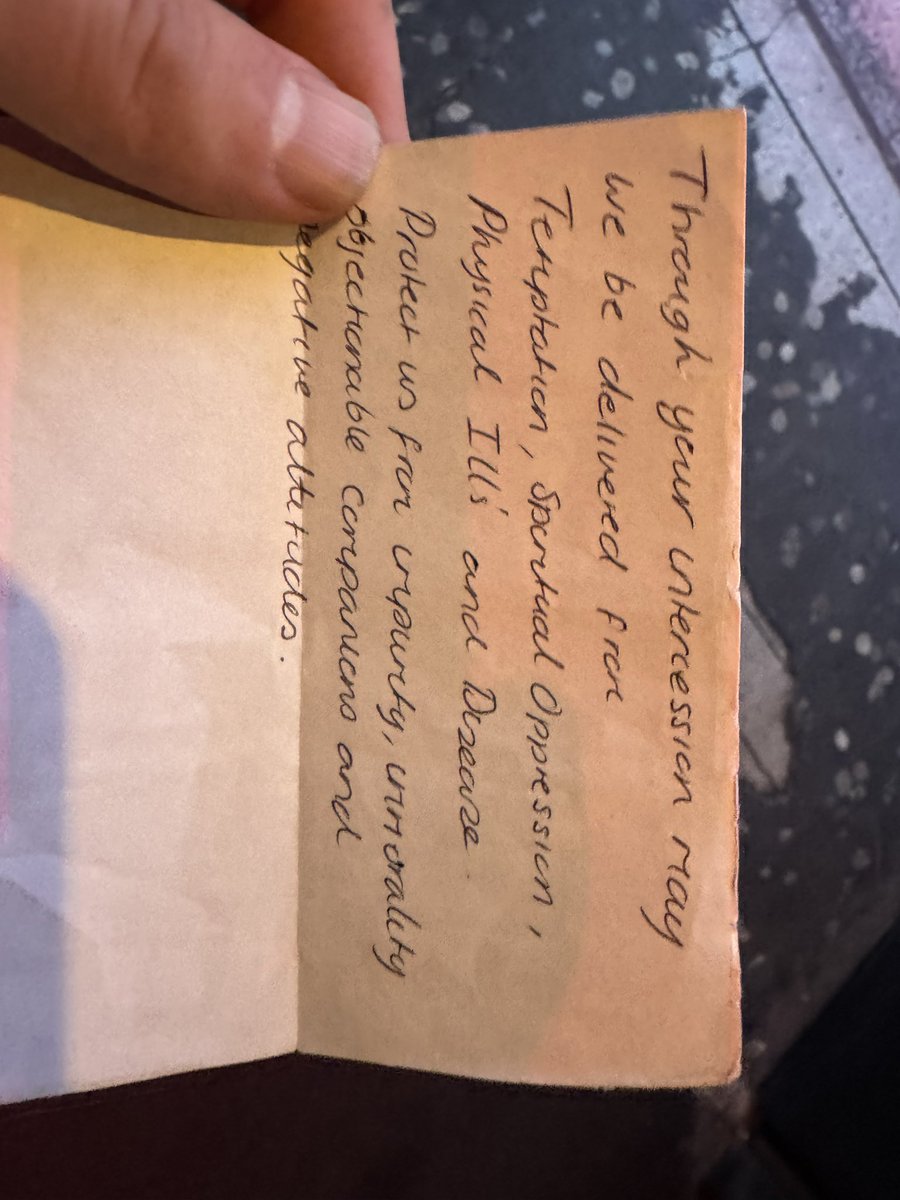 Through your intercession may
we be delivered from
Temptation, Spiritual Oppression,
Physical Ill's and Disease
Protect us from impurity, immorality
objectionable companions and
negative attitudes.